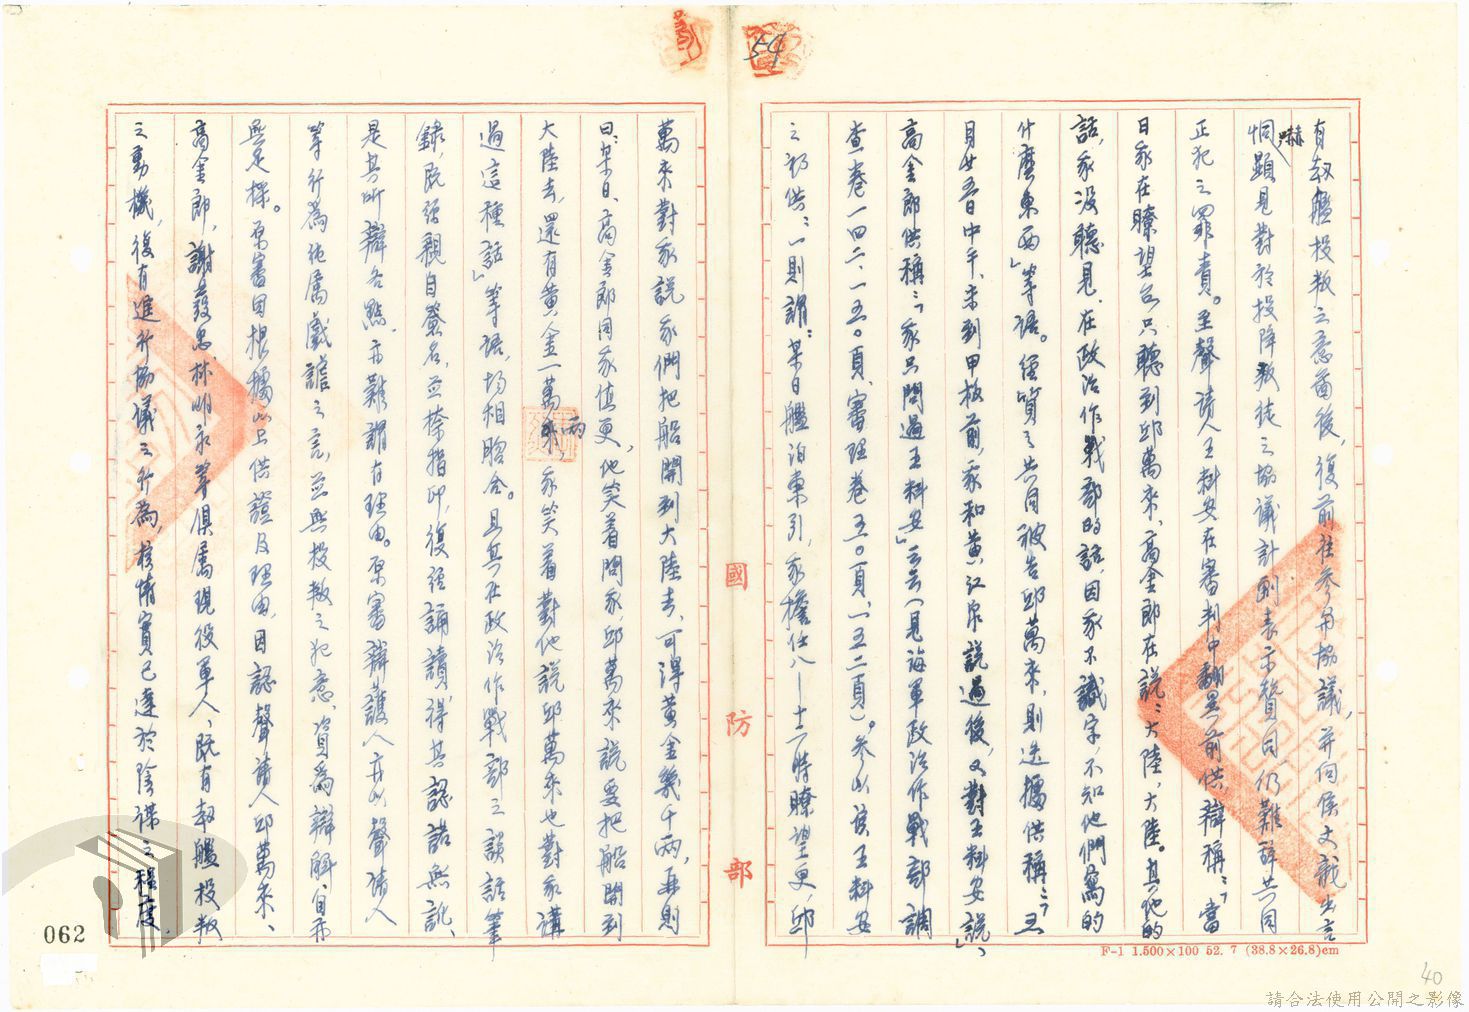 54
有刼艦投叛之意啚後，復前往參與協議，并向侯文龍出言
恫嚇顯見對於投降叛徒之協議計劃表示贊同，仍難辭共同
正犯之罪責。至聲請人王科安在審判中翻異前供辯稱：「當
日我在瞭望台只聽到邱萬來、高金郎在說：大陸，大陸。其他的
話，我沒聽見，在政治作戰部的話，因我不識字，不知他們寫的
什麼東西」等語。經質之共同被告邱萬來，則迭據供稱：「五
月廿五日中午，來到甲板前，我和黃江泉說過後，又對王科安說」，
高金郎供稱：「我只問過王科安」云云（見海軍政治作戰部調
查卷一四二、一五〇頁、審理卷五〇頁、一五二頁）。參以該王科安
之初供：一則謂：某日艦泊東引，我擔任八—十二時瞭望更，邱
萬來對我說我們把船開到大陸去，可得黃金幾千兩，再則
曰：某日，高金郎同我值更，他笑着問我，邱萬來說要把船開到
大陸去，還有黃金一萬兩，我笑着對他說邱萬來也對我講
過這種話」等語，均相脗合。且其在政治作戰部之談話筆
錄，既經親自簽名，並捺指印，復經誦讀，得其認諾無訛、
是其所辯各點，亦難謂有理由。原審辯護人亦以聲請人
等行為純屬戲謔之言，並無投叛之犯意、資為辯解、自亦
無足採。原審因根據以上供證及理由，因認聲請人邱萬來、
高金郎，謝發忠、林明永等俱屬現役軍人、既有刼艦投叛
之動機，復有進行協議之行為，核情實已達於陰謀之程度，
國防部
F-1 1.500×100 52. 7 (38.8×26.8)cm
062
40
請合法使用公開之影像